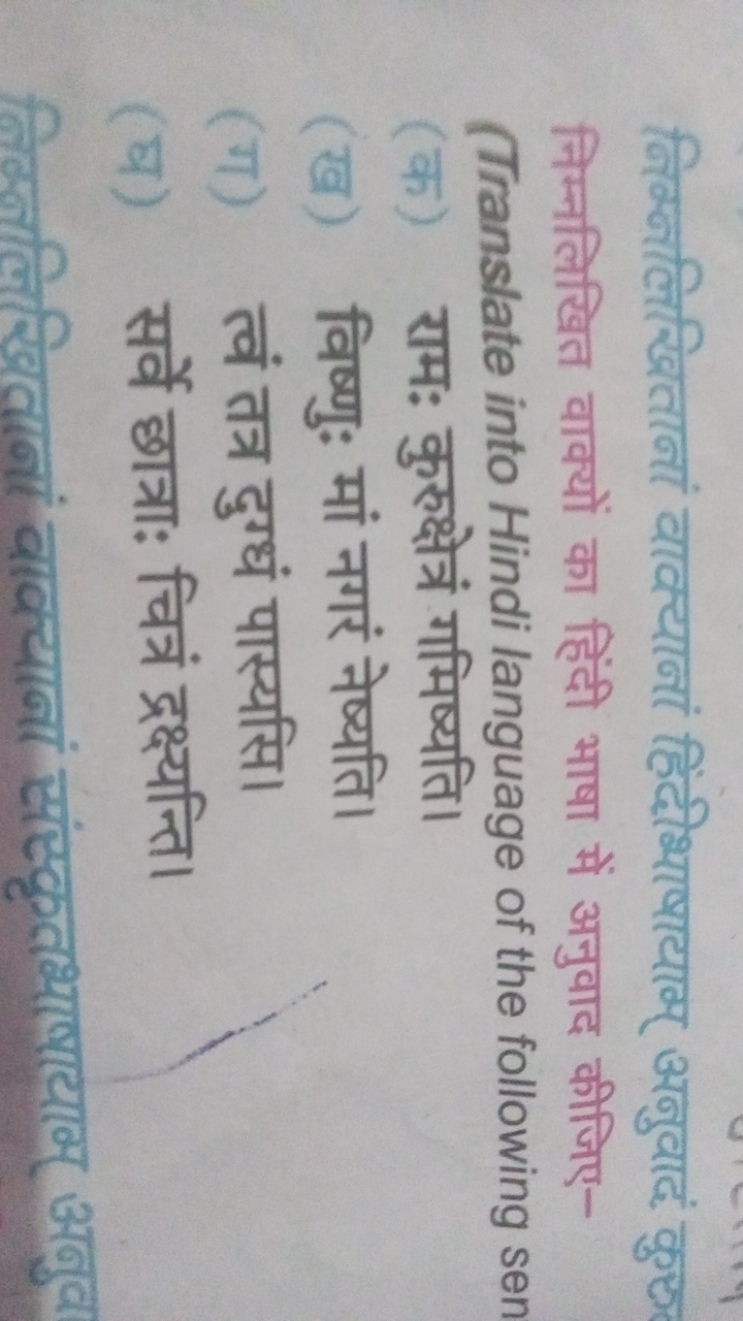 निम्नलिखितानां वाक्यानां हिंदीभाषायाम् अनुवादं
निम्नलिखित वाक्यों का हिंदी भाषा में अनुवाद कीजिए–
(Translate into Hindi language of the following sen
(क) रामः कुरुक्षेत्रं गमिष्यति।
(ख) विष्णुः मां नगरं नेष्यति।
(ग) त्वं तत्र दुग्धं पास्यसि।
(घ) सर्वे छात्राः चित्रं द्रक्ष्यन्ति।
निम्नलिखितानां वाक्यानां संस्कृतभाषायाम् अनुवा